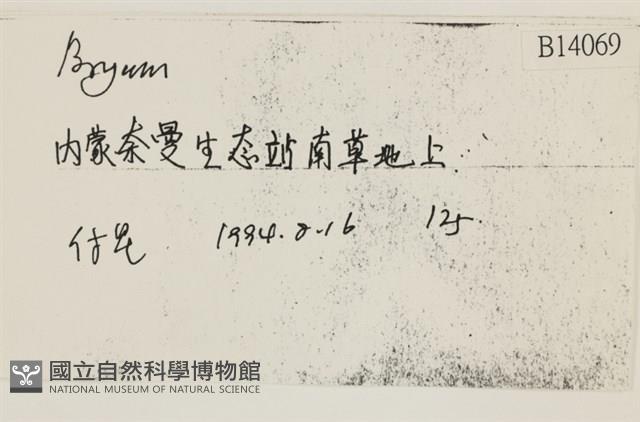 B14069
Bryum
内蒙奈曼生态站南草地上
1994.8.16 125
國立自然科學博物館
NATIONAL MUSEUM OF NATURAL SCIENCE